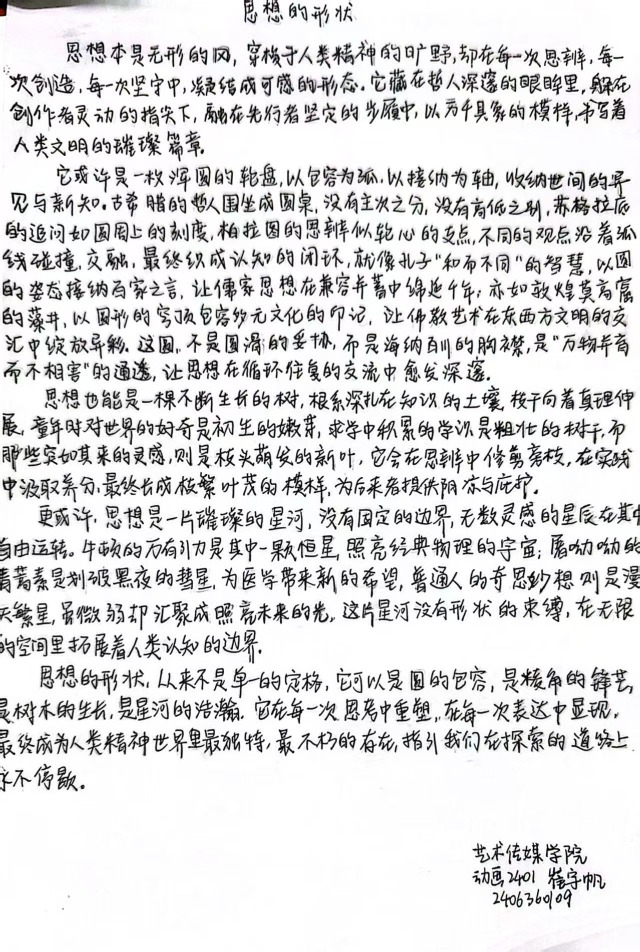 思想的形状
思想本是无形的风，穿梭于人类精神的旷野，却在每一次思辨，每一
次创造，每一次坚守中，凝结成可感的形态。它藏在哲人深邃的眼眸里，躲在
创作者灵动的指尖下，融在先行者坚定的步履中，以万千具象的模样，书写着
人类文明的璀璨篇章。
它或许是一枚浑圆的轮盘，以包容为弧，以接纳为轴，收纳世间的异
见与新知。古希腊的哲人围坐成圆桌，没有主次之分，没有高低之别，苏格拉底
的追问如圆周上的刻度，柏拉图的思辨似轮心的支点，不同的观点沿着弧
线碰撞，交融，最终织成认知的闭环，就像孔子"和而不同"的智慧，以圆
的姿态接纳百家之言，让儒家思想在兼容并蓄中绵延千年；亦如敦煌莫高窟
的藻井，以圆形的穹顶包容多元文化的印记，让佛教艺术在东西方文明的交
汇中绽放异彩。这圆，不是圆滑的妥协，而是海纳百川的胸襟，是"万物并育
而不相害"的通透，让思想在循环往复的交流中愈发深邃。
思想也能是一棵不断生长的树，根系深扎在知识的土壤，枝干向着真理伸
展，童年时对世界的好奇是初生的嫩芽，求学中积累的学识是粗壮的树干，而
那些突如其来的灵感，则是枝头萌发的新叶，它会在思辨中修剪旁枝，在实践
中汲取养分，最终长成枝繁叶茂的模样，为后来者提供阴凉与庇护。
更或许，思想是一片璀璨的星河，没有固定的边界，无数灵感的星辰在其中
自由运转。牛顿的万有引力是其中一颗恒星，照亮经典物理的宇宙；屠呦呦的
青蒿素是划破黑夜的彗星，为医学带来新的希望，普通人的奇思妙想则是漫
天繁星，虽微弱却汇聚成照亮未来的光。这片星河没有形状的束缚，在无限
的空间里拓展着人类认知的边界。
思想的形状，从来不是单一的定格，它可以是圆的包容，是棱角的锋芒，
是树木的生长，是星河的浩瀚。它在每一次思考中重塑，在每一次表达中显现，
最终成为人类精神世界里最独特，最不朽的存在，指引我们在探索的道路上
永不停歇。
艺术传媒学院
动画2401 崔宇帆
2406360109